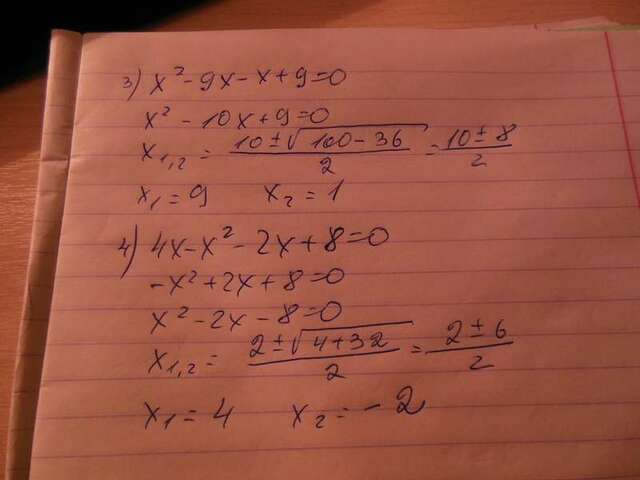 3) x² - 9x - x + 9 = 0
x² - 10x + 9 = 0
x₁,₂ = (10 ± √(100 - 36))/2 = (10 ± 8)/2
x₁ = 9 x₂ = 1
4) 4x - x² - 2x + 8 = 0
-x² + 2x + 8 = 0
x² - 2x - 8 = 0
x₁,₂ = (2 ± √(4 + 32))/2 = (2 ± 6)/2
x₁ = 4 x₂ = -2